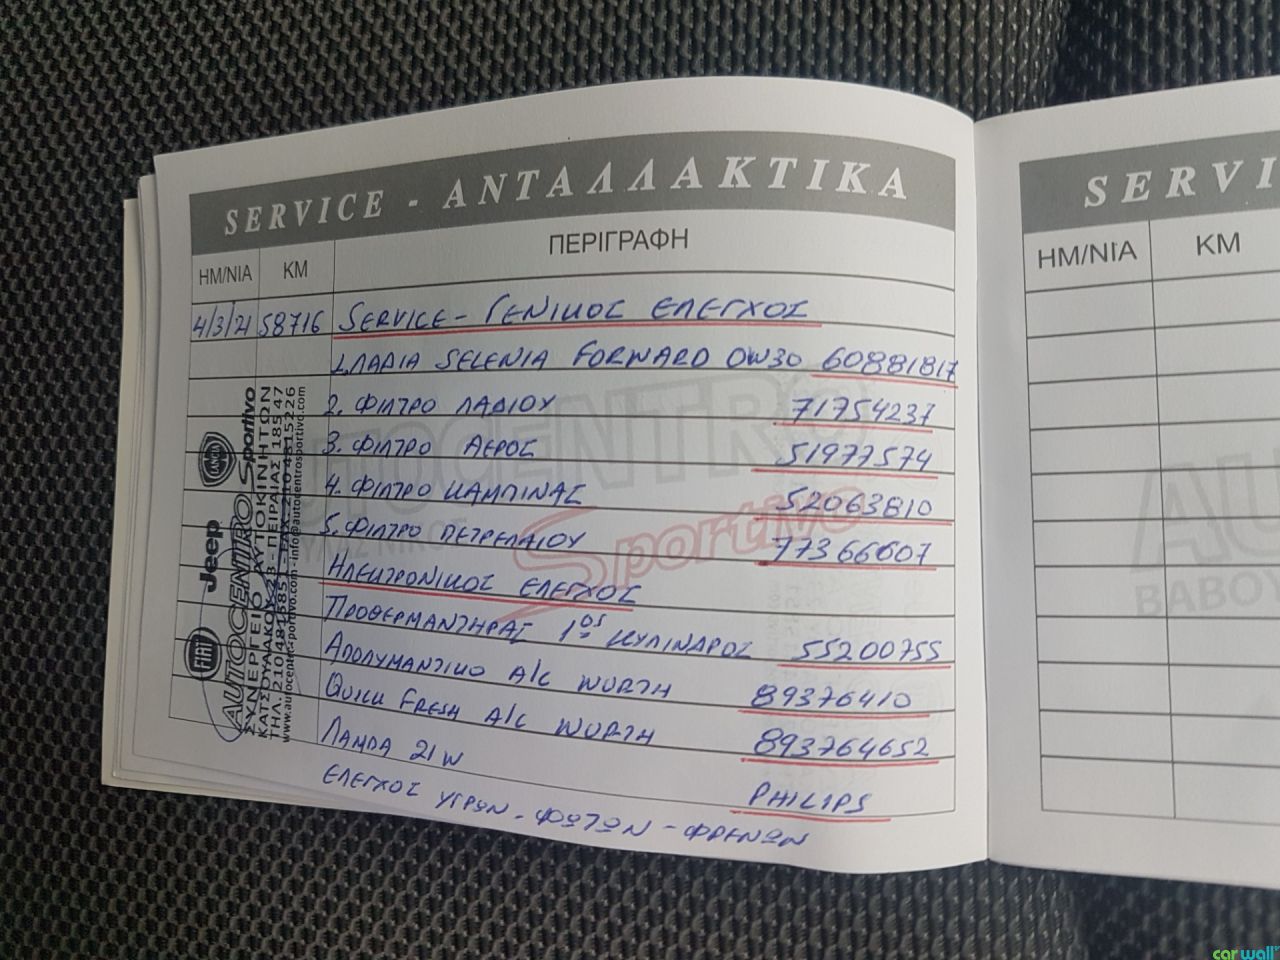 SERVICE - ΑΝΤΑΛΛΑΚΤΙΚΑ
ΗΜ/ΝΙΑ ΚΜ ΠΕΡΙΓΡΑΦΗ
4/3/21 58716 SERVICE - ΓΕΝΙΚΟΣ ΕΛΕΓΧΟΣ
1. ΛΑΔΙΑ SELENIA FORWARD 0W30 60881817
2. ΦΙΛΤΡΟ ΛΑΔΙΟΥ 71754237
3. ΦΙΛΤΡΟ ΑΕΡΟΣ 51977574
4. ΦΙΛΤΡΟ ΚΑΜΠΙΝΑΣ 52063810
5. ΦΙΛΤΡΟ ΠΕΤΡΕΛΑΙΟΥ 77366607
ΗΛΕΚΤΡΟΝΙΚΟΣ ΕΛΕΓΧΟΣ
ΠΡΟΘΕΡΜΑΝΤΗΡΑΣ 1ος ΚΥΛΙΝΔΡΟΣ 55200755
ΑΠΟΛΥΜΑΝΤΙΚΟ A/C WURTH 89376410
QUICK FRESH A/C WURTH 893764652
ΛΑΜΠΑ 21W PHILIPS
ΕΛΕΓΧΟΣ ΥΓΡΩΝ - ΦΩΤΩΝ - ΦΡΕΝΩΝ
FIAT Jeep LANCIA
AUTOCENTRO Sportivo
ΣΥΝΕΡΓΕΙΟ ΑΥΤΟΚΙΝΗΤΩΝ
ΚΑΤΣΟΥΛΑΚΟΥ 23 - ΠΕΙΡΑΙΑΣ 185 47
ΤΗΛ. 210 4815851 - FAX. 210 4815226
www.autocentrosportivo.com - info@autocentrosportivo.com
AUTOCENTRO
Sportivo
SERVI
ΗΜ/ΝΙΑ ΚΜ
AU
ΒΑΒΟΥ
carwall